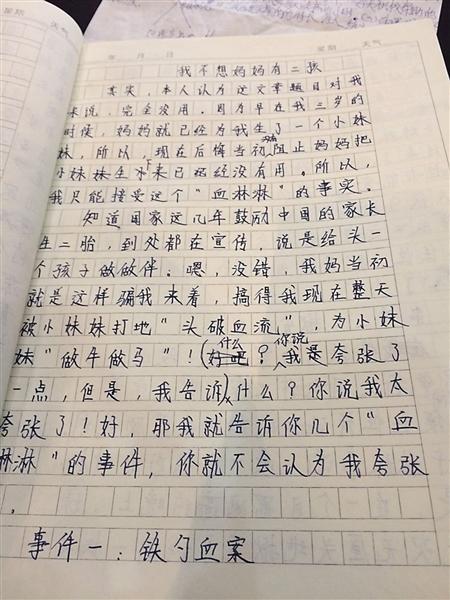 星期 天气
年 月 日 星期 天气
我不想妈妈有二孩
其实，本人认为这文章题目对我
来说，完全没用。因为早在我三岁的
时候，妈妈就已经为我生了一个小妹
妹，所以，现在后悔当初没阻止妈妈把
小妹妹生下来已经没有用。所以，
我只能接受这个“血淋淋”的事实。
知道国家这几年鼓励中国的家长
生二胎，到处都在宣传，说是给头一
个孩子做做伴。嗯，没错，我妈当初
就是这样骗我来着，搞得我现在整天
被小妹妹打地“头破血流”，为小妹
妹“做牛做马”！（什么？你说我是夸张了
一点，但是，我告诉）什么？你说我太
夸张了！好，那我就告诉你几个“血
淋淋”的事件，你就不会认为我夸张
。
事件一：铁勺血案